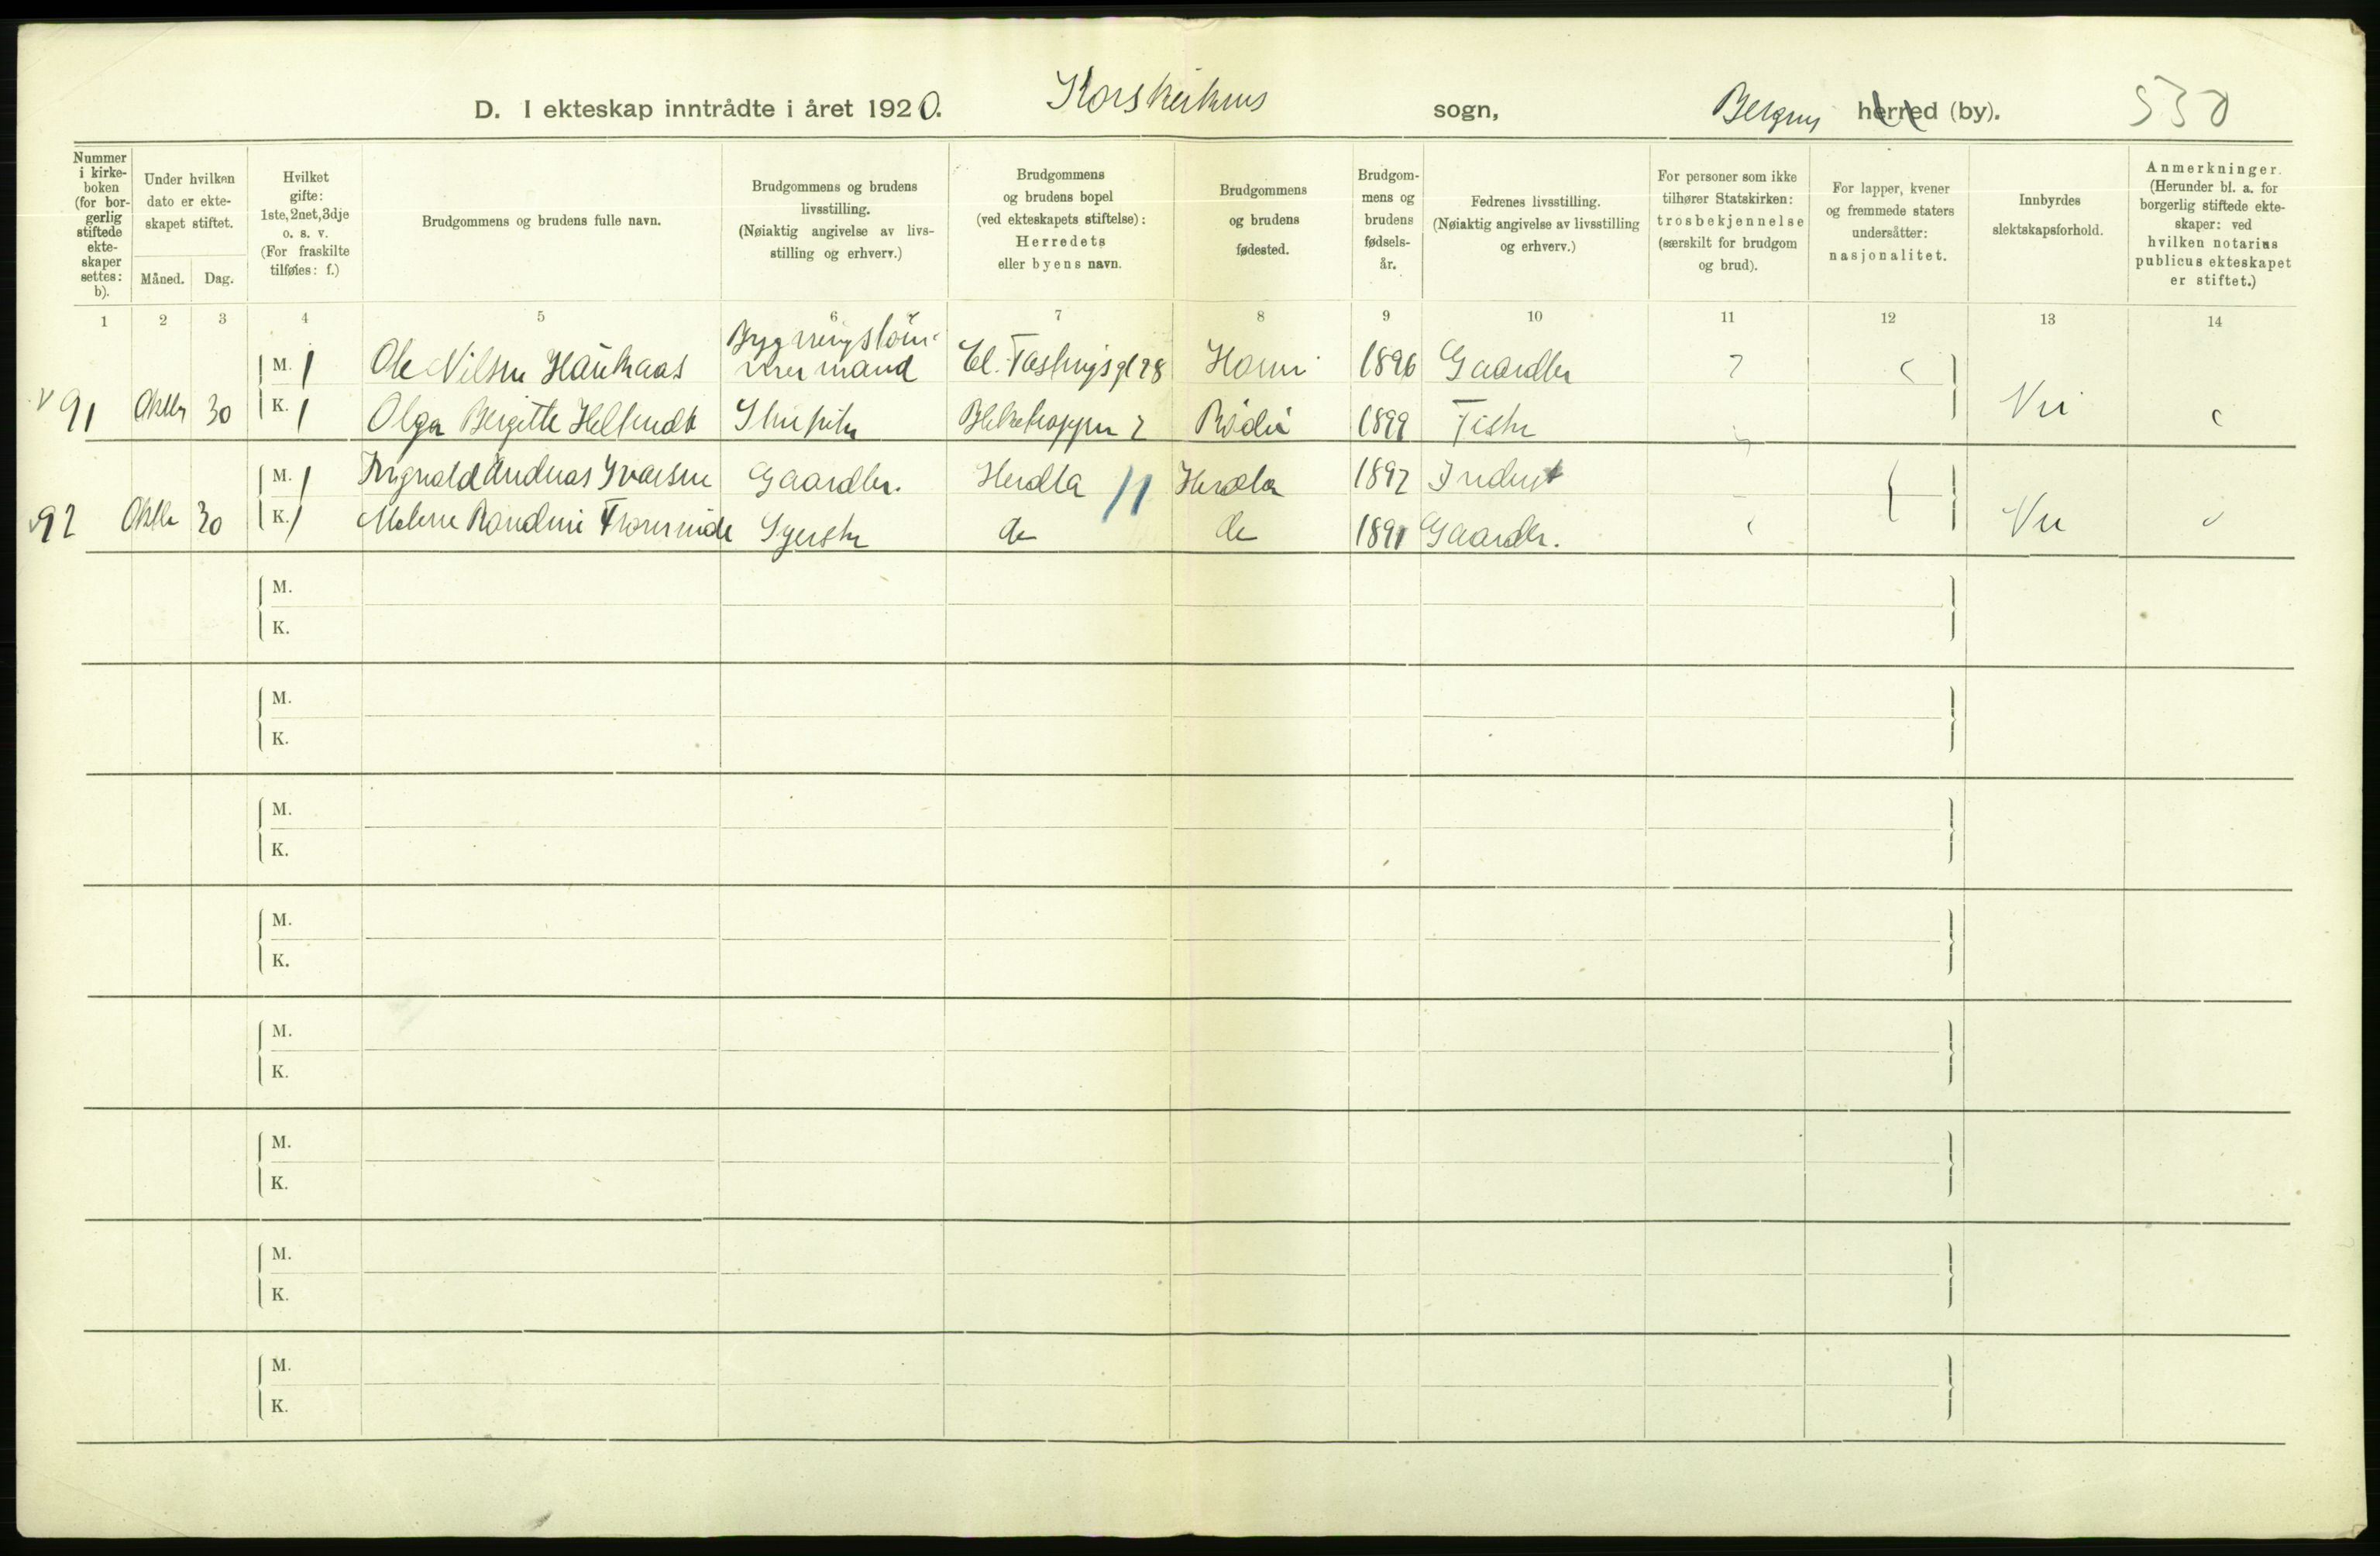 D. I ekteskap inntrådte i året 1920. Korskirkens sogn, Bergens herred (by). 530
Nummer i kirke-boken (for bor-gerlig stiftede ekte-skaper settes: b).
Under hvilken dato er ekte-skapet stiftet.
Måned. Dag.
Hvilket gifte: 1ste, 2net, 3dje o. s. v. (For fraskilte tilføies: f.)
Brudgommens og brudens fulle navn.
Brudgommens og brudens livsstilling. (Nøiaktig angivelse av livs-stilling og erhverv.)
Brudgommens og brudens bopel (ved ekteskapets stiftelse): Herredets eller byens navn.
Brudgommens og brudens fødested.
Brudgom-mens og brudens fødsels-år.
Fedrenes livsstilling. (Nøiaktig angivelse av livsstilling og erhverv.)
For personer som ikke tilhører Statskirken: trosbekjennelse (særskilt for brudgom og brud).
For lapper, kvener og fremmede staters undersåtter: nasjonalitet.
Innbyrdes slektskapsforhold.
Anmerkninger. (Herunder bl. a. for borgerlig stiftede ekte-skaper: ved hvilken notarius publicus ekteskapet er stiftet.)
1 2 3 4 5 6 7 8 9 10 11 12 13 14
M. 1 Ole Nilsen Haukaas Bygningstøm-
mermand 28 1896 Gaardbr
91 Oktbr 30 K. 1 Olga Bergitte 1899 Fisker Nei
M. 1 Andreas Ivarsen Gaardbr. Herdla 11 Herdla 1892
92 Oktbr 30 K. 1 Malene Syerske do do 1891 Gaardbr. Nei
M.
K.
M.
K.
M.
K.
M.
K.
M.
K.
M.
K.
M.
K.
M.
K.